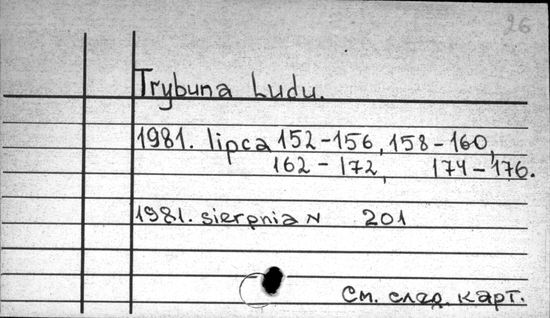 26
Trybuna Ludu.
1981. lipca 152-156, 158-160,
162-172, 174-176.
1981. sierpnia N 201
См. след. карт.